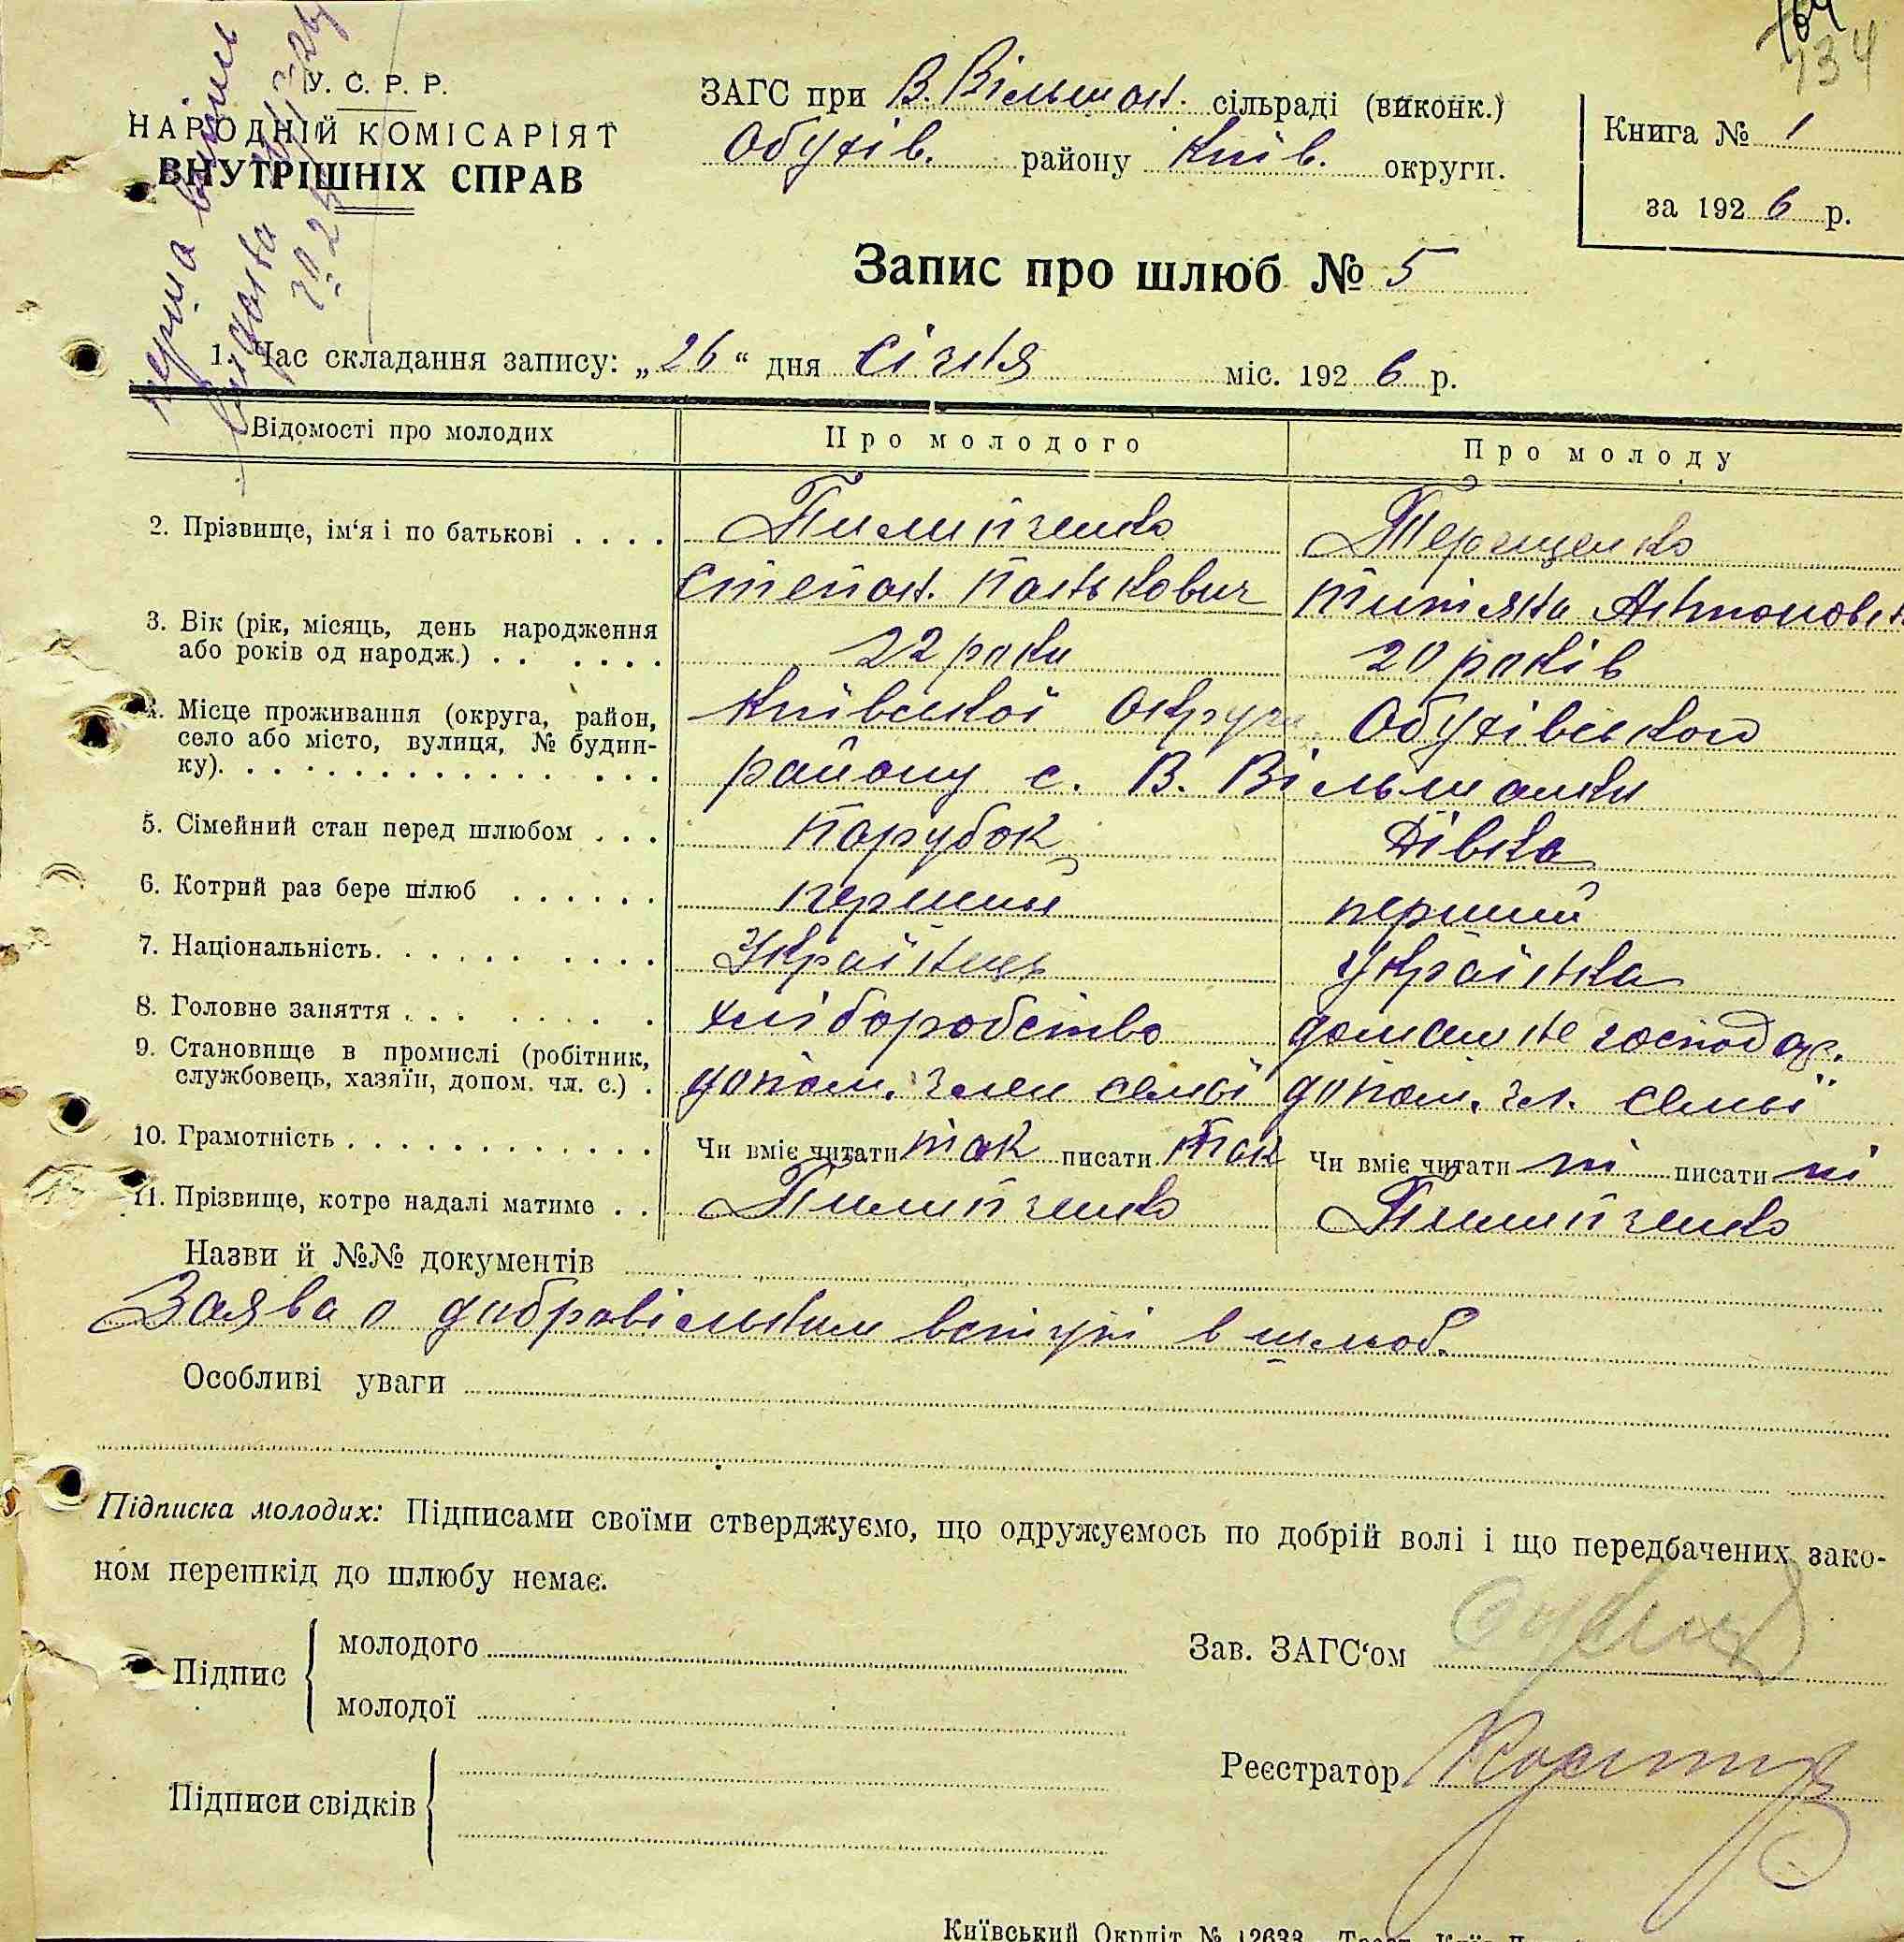 164
134
У. С. Р. Р.
НАРОДНІЙ КОМІСАРІЯТ
ВНУТРІШНІХ СПРАВ
ЗАГС при В. Вільшан. сільраді (виконк.)
Обухів. району Київ. округи.
Книга № 1
за 1926 р.
Запис про шлюб № 5
1. Час складання запису: „26“ дня січня міс. 1926 р.
Відомості про молодих
Про молодого
Про молоду
2. Прізвище, ім‘я і по батькові . . . .
Пилипченко
Степан. Панькович
Терещенко
Титяна Антоновна
3. Вік (рік, місяць, день народження
або років од народж.) . . . . . .
22 роки
20 років
4. Місце проживання (округа, район,
село або місто, вулиця, № будин-
ку). . . . . . . . . . . . . . . . .
Київської Округи Обухівського
району с. В. Вільшанки
5. Сімейний стан перед шлюбом . . .
Парубок
Дівка
6. Котрий раз бере шлюб . . . . . .
перший
перший
7. Національність. . . . . . . . . .
Українець
Українка
8. Головне заняття . . . . . . . .
хліборобство
домашне господар.
9. Становище в промислі (робітник,
службовець, хазяїн, допом. чл. с.) .
допом. член семьї
допом. чл. семьї
10. Грамотність . . . . . . . . . . . .
Чи вміє читати так писати так
Чи вміє читати ні писати ні
11. Прізвище, котре надалі матиме . .
Пилипченко
Пилипченко
Назви й №№ документів
Заява о добровільном вступі в шлюб.
Особливі уваги
Підписка молодих: Підписами своїми стверджуємо, що одружуємось по добрій волі і що передбачених зако-
ном перешкід до шлюбу немає.
Підпис
молодого
молодої
Зав. ЗАГС‘ом
Реєстратор
Підписи свідків
Київський Окрліт № 12633.